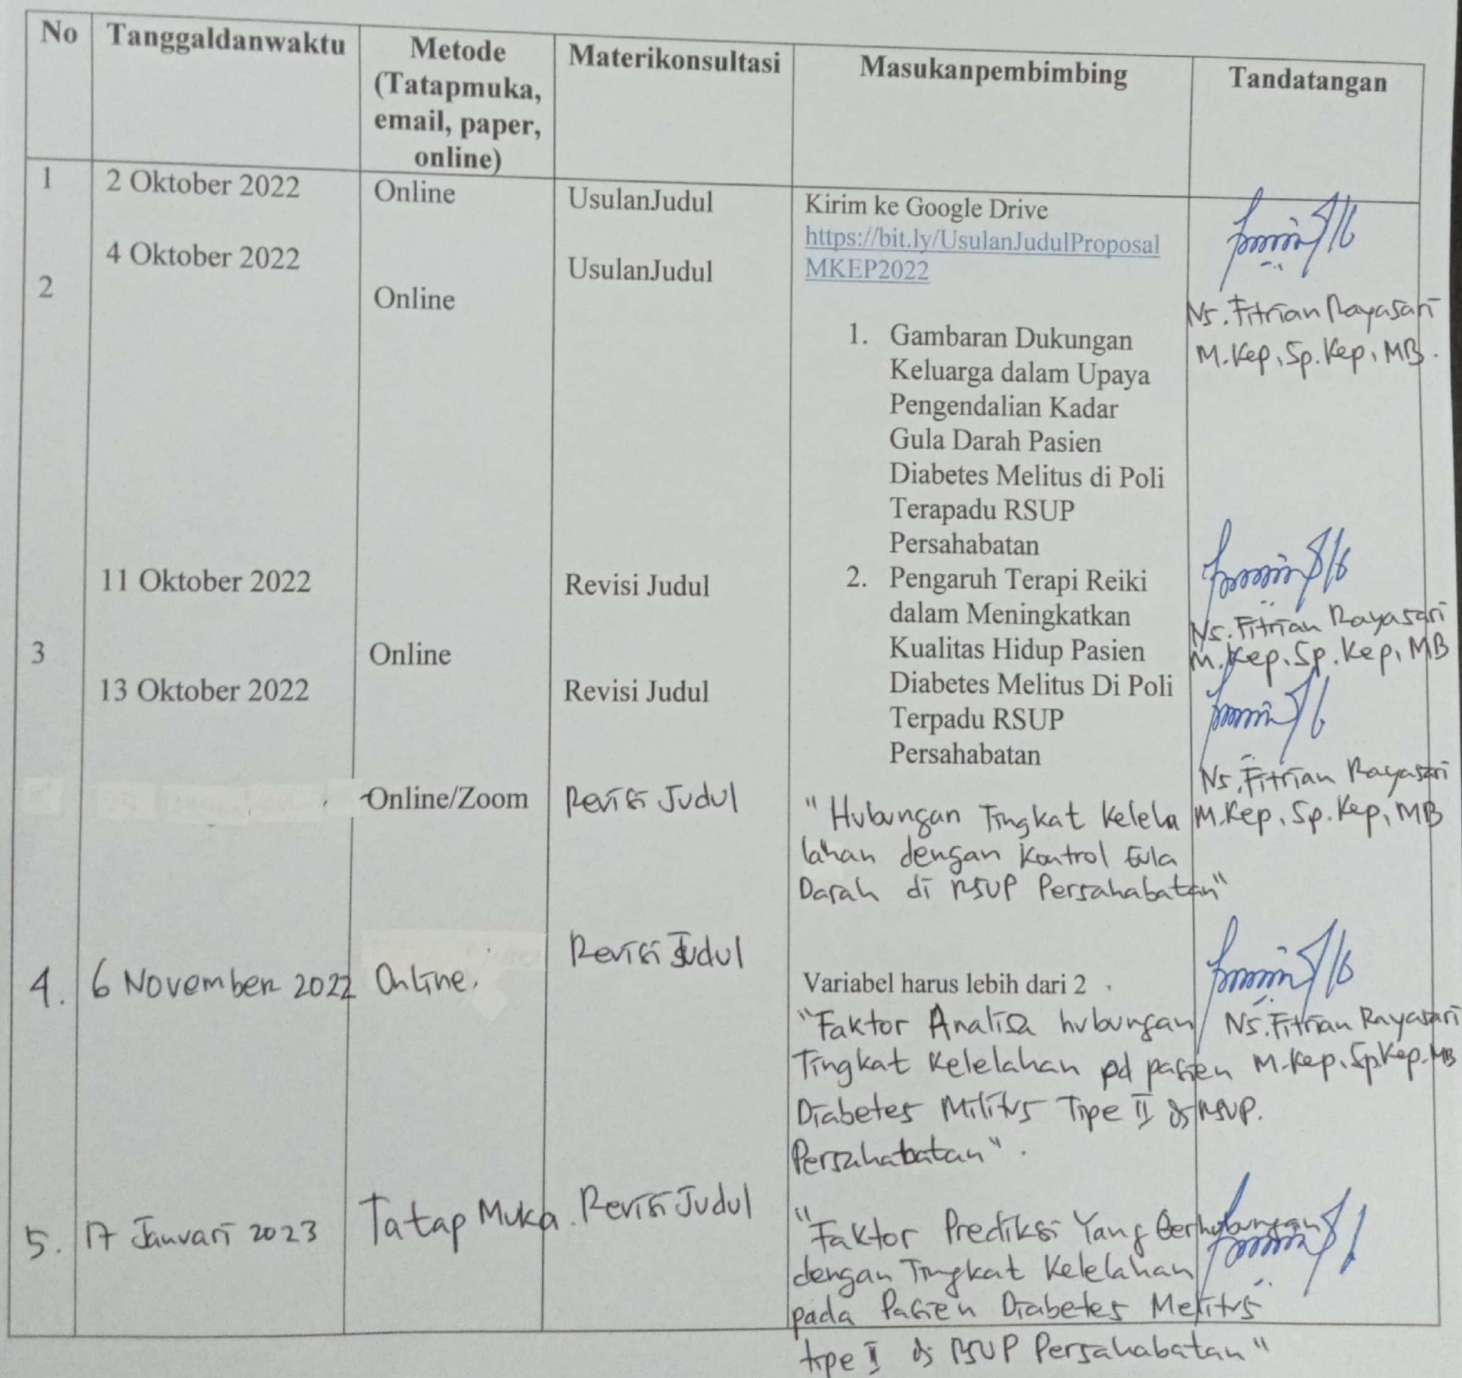 No Tanggaldanwaktu Metode (Tatapmuka, email, paper, online) Materikonsultasi Masukanpembimbing Tandatangan
1 2 Oktober 2022 Online UsulanJudul Kirim ke Google Drive
https://bit.ly/UsulanJudulProposal
MKEP2022
4 Oktober 2022 UsulanJudul
2 Online
Ns. Fitrian Rayasari
M.Kep, Sp.Kep, MB.
1. Gambaran Dukungan
Keluarga dalam Upaya
Pengendalian Kadar
Gula Darah Pasien
Diabetes Melitus di Poli
Terapadu RSUP
Persahabatan
11 Oktober 2022 Revisi Judul
2. Pengaruh Terapi Reiki
dalam Meningkatkan
Kualitas Hidup Pasien
Diabetes Melitus Di Poli
Terpadu RSUP
Persahabatan
Ns. Fitrian Rayasari
M.Kep, Sp.Kep, MB
3 Online
13 Oktober 2022 Revisi Judul
Ns. Fitrian Rayasari
M.Kep, Sp.Kep, MB
Online/Zoom Revisi Judul "Hubungan Tingkat Kelela
lahan dengan Kontrol Gula
Darah di RSUP Persahabatan"
4. 6 November 2022 Online. Revisi Judul Variabel harus lebih dari 2
"Faktor Analisa hubungan
Tingkat Kelelahan pd pasien
Diabetes Militus Tipe II di RSUP.
Persahabatan".
Ns. Fitrian Rayasari
M.Kep, Sp.Kep.MB
5. 17 Januari 2023 Tatap Muka. Revisi Judul "Faktor Prediksi Yang Berhubungan
dengan Tingkat Kelelahan
pada Pasien Diabetes Melitus
tipe II di RSUP Persahabatan"